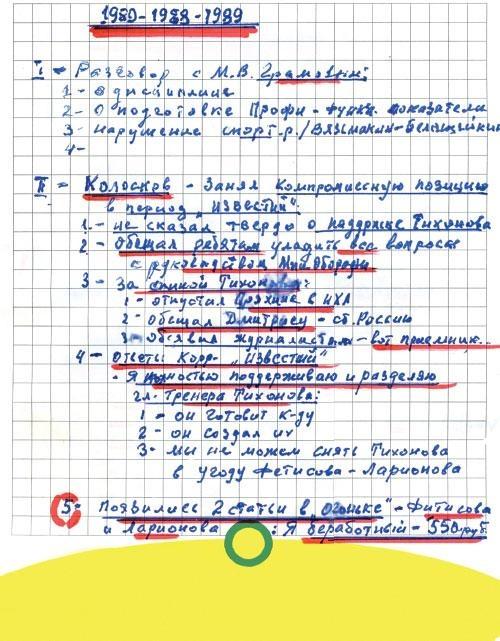 1980-1988-1989
I = Разговор с М.В. Грамовым:
1 - О дисциплине
2 - О подготовке Профи - функ. показатели
3 - Нарушение спорт.р./Вязьмакин-Белошейкин
4 -
II = Колосков - Занял компромиссную позицию
в период "ИЗВЕСТИЙ":
1 - не сказал твердо о поддержке Тихонова
2 - Обещал ребятам уладить все вопросы
с руководством Мин.Обороны
3 - За спиной Тихонова:
1 - отпустил Пряхина в НХЛ
2 - обещал Дмитриеву - сб. Россию
3 - Объявил журналистам - вот приемник...
4 - Ответы Корр - "Известий"
- Я полностью поддерживаю и разделяю
гл. тренера Тихонова:
1 - он готовит к-ду
2 - он создал их
3 - мы не можем снять Тихонова
в угоду Фетисова - Ларионова
5 - Появились 2 статьи в "Огоньке" - Фитисова
и Ларионова : Я безработный - 550 руб.